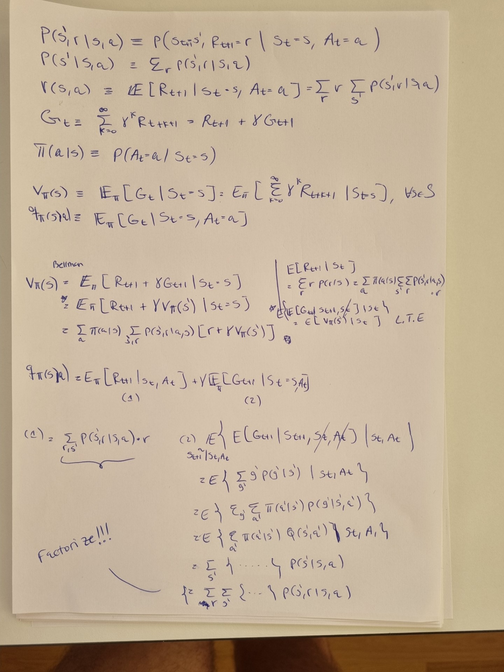 P(s',r|s,a) ≡ P(St+1=s', Rt+1=r | St=s, At=a)
P(s'|s,a) ≡ Σr P(s',r|s,a)
r(s,a) ≡ E[Rt+1 | St=s, At=a] = Σr r Σs' P(s',r|s,a)
Gt ≡ Σ∞k=0 γ^k Rt+k+1 = Rt+1 + γGt+1
π(a|s) ≡ P(At=a | St=s)
Vπ(s) ≡ Eπ[Gt | St=s] = Eπ[Σ∞k=0 γ^k Rt+k+1 | St=s], ∀s∈S
qπ(s,a) ≡ Eπ[Gt | St=s, At=a]
Bellman
Vπ(s) = Eπ[Rt+1 + γGt+1 | St=s]
= Eπ[Rt+1 + γVπ(s') | St=s]
= Σa π(a|s) Σs',r P(s',r|a,s) [r + γVπ(s')]
E[Rt+1 | St]
= Σr r P(r|s) = Σa π(a|s) Σs' Σr P(s',r|a,s)·r
E{E[Gt+1 | St+1, St] | St}
= E[Vπ(s') | St] L.T.E
qπ(s,a) = Eπ[Rt+1 | St, At] + γ Eπ[Gt+1 | St=s, At]
(1) (2)
(1) = Σr,s' P(s',r|s,a)·r
(2) E{ E[Gt+1 | St+1, St, At] | St, At }
St+1|St,At
= E{ Σg' g' P(g'|s') | St, At }
= E{ Σg' Σa' π(a'|s') P(g'|s',a') }
= E{ Σa' π(a'|s') Q(s',a') | St, At }
= Σs' {......} P(s'|s,a)
= Σr Σs' {...} P(s',r|s,a)
Factorize!!!